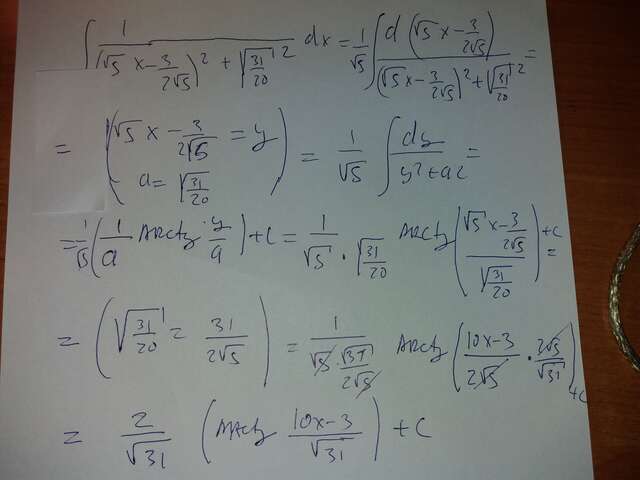 ∫ 1/((√5x - 3/(2√5))² + √(31/20)²) dx = 1/√5 ∫ d(√5x - 3/(2√5))/((√5x - 3/(2√5))² + √(31/20)²) =
= (√5x - 3/(2√5) = y, a = √(31/20)) = 1/√5 ∫ dy/(y²+a²) =
= 1/√5 (1/a arctg y/a) + C = 1/√5 · 1/√(31/20) arctg ((√5x - 3/(2√5))/√(31/20)) + C =
= (√(31/20) = √31/(2√5)) = 1/(√5·√31/(2√5)) arctg ((10x-3)/(2√5) · 2√5/√31) + C
= 2/√31 (arctg (10x-3)/√31) + C